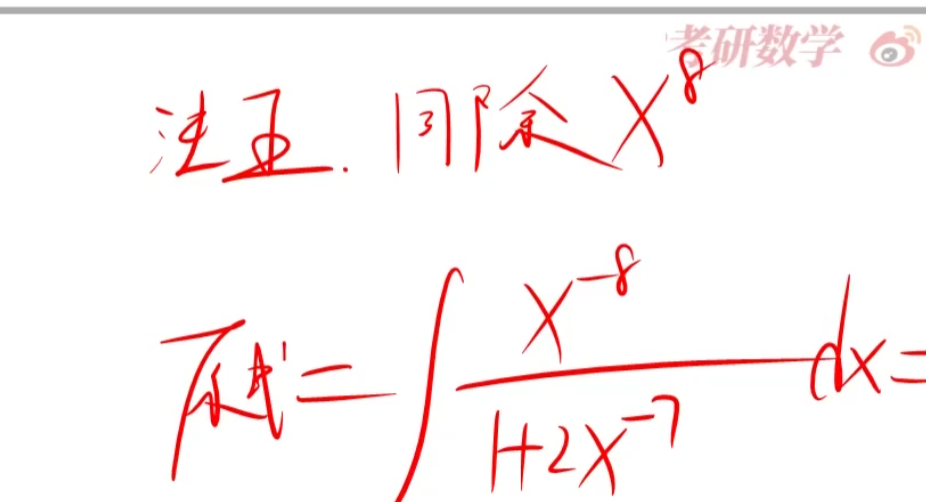 考研数学
法五. 同除 x⁸
原式 = ∫ x⁻⁸ / (1+2x⁻⁷) dx =